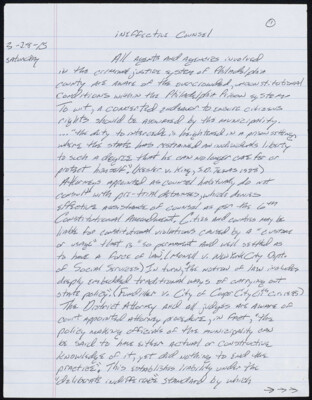 ①
ineffective Counsel
3-28-15
Saturday
All agents and agencies involved
in the criminal justice system of Philadelphia
county are aware of the overcrowded, unconstitutional
conditions within the Philadelphia Prison system.
To wit, a concerted endeavor to ensure citizens
rights should be assumed by the municipality.
... "the duty to intercede is heightened in a prison setting
where the state has restrained an individual's liberty
to such a degree that he can no longer care for or
protect himself".
Attorneys appointed as counsel habitually do not
consult with pre-trial detainees, which denies
effective assistance of counsel as per the 6th
Constitutional Amendment. Cities and counties may be
liable for constitutional violations caused by a "custom
or usage" that is "so permanent and well settled as
to have a force of law (Monell v. New York City Dept.
of Social Services) In turn, the notion of law includes
deeply embedded traditional ways of carrying out
state policy". v. City of
The District Attorney and all judges are aware of
court appointed attorney procedure, in fact, "the
policy making officials of the municipality can
be said to have either actual or constructive
knowledge of it, yet did nothing to end the
practice". This establishes liability under the
"deliberate indifference" standard by which
→→→